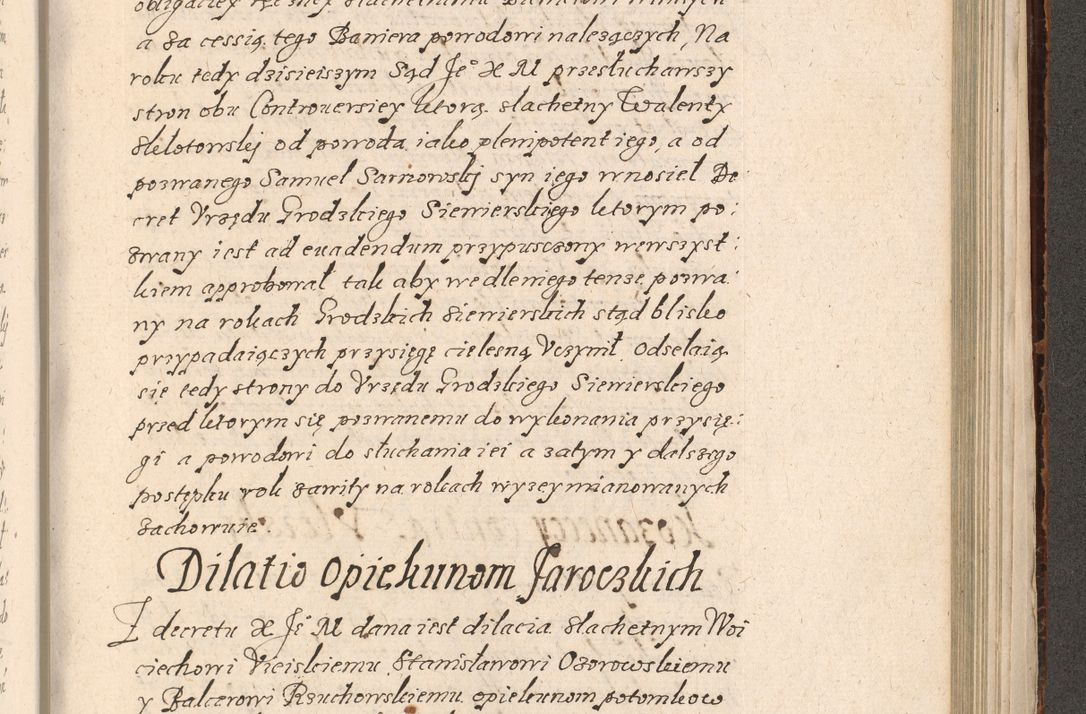 a za cessią tego Baniera powodowi należących, Na
roku tedy dzisieiszym Sąd Je° X M przesłuchawszy
stron obu Controuersiey ktorą slachetny Walenty
od powoda iako plenipotent iego, a od
pozwanego Samuel Sarnowskj syn iego wnosiel De
cret Vrzędu Grodzkiego Siewierskiego ktorym po:
zwany iest ad euadendum przypusczony wewszyst:
kiem approbował tak aby wedle niego tenże pozwa
ny na rokach Grodzkich Siewierskich stąd blisko
przypadaiączych przysięgę cielesną Vczynił Odsełaią
się tedy strony do Vrzędu Grodzkiego Siewierskiego
przed ktorym się pozwanemu do wykonania przysię:
gi a powodowi do słuchania iei a zatym y dalszego
postępku rok zawity na rokach wyzey mianowanych
zachowuie.
Dilatio Opiekunom Jaroczkich
Z decretu X Je M dana iest dilacia slachetnym Woi
ciechowi Vieiskiemu Stanisławowi Ozorowskiemu
y Balcerowi Rzuchowskiemu opiekunom potomkow